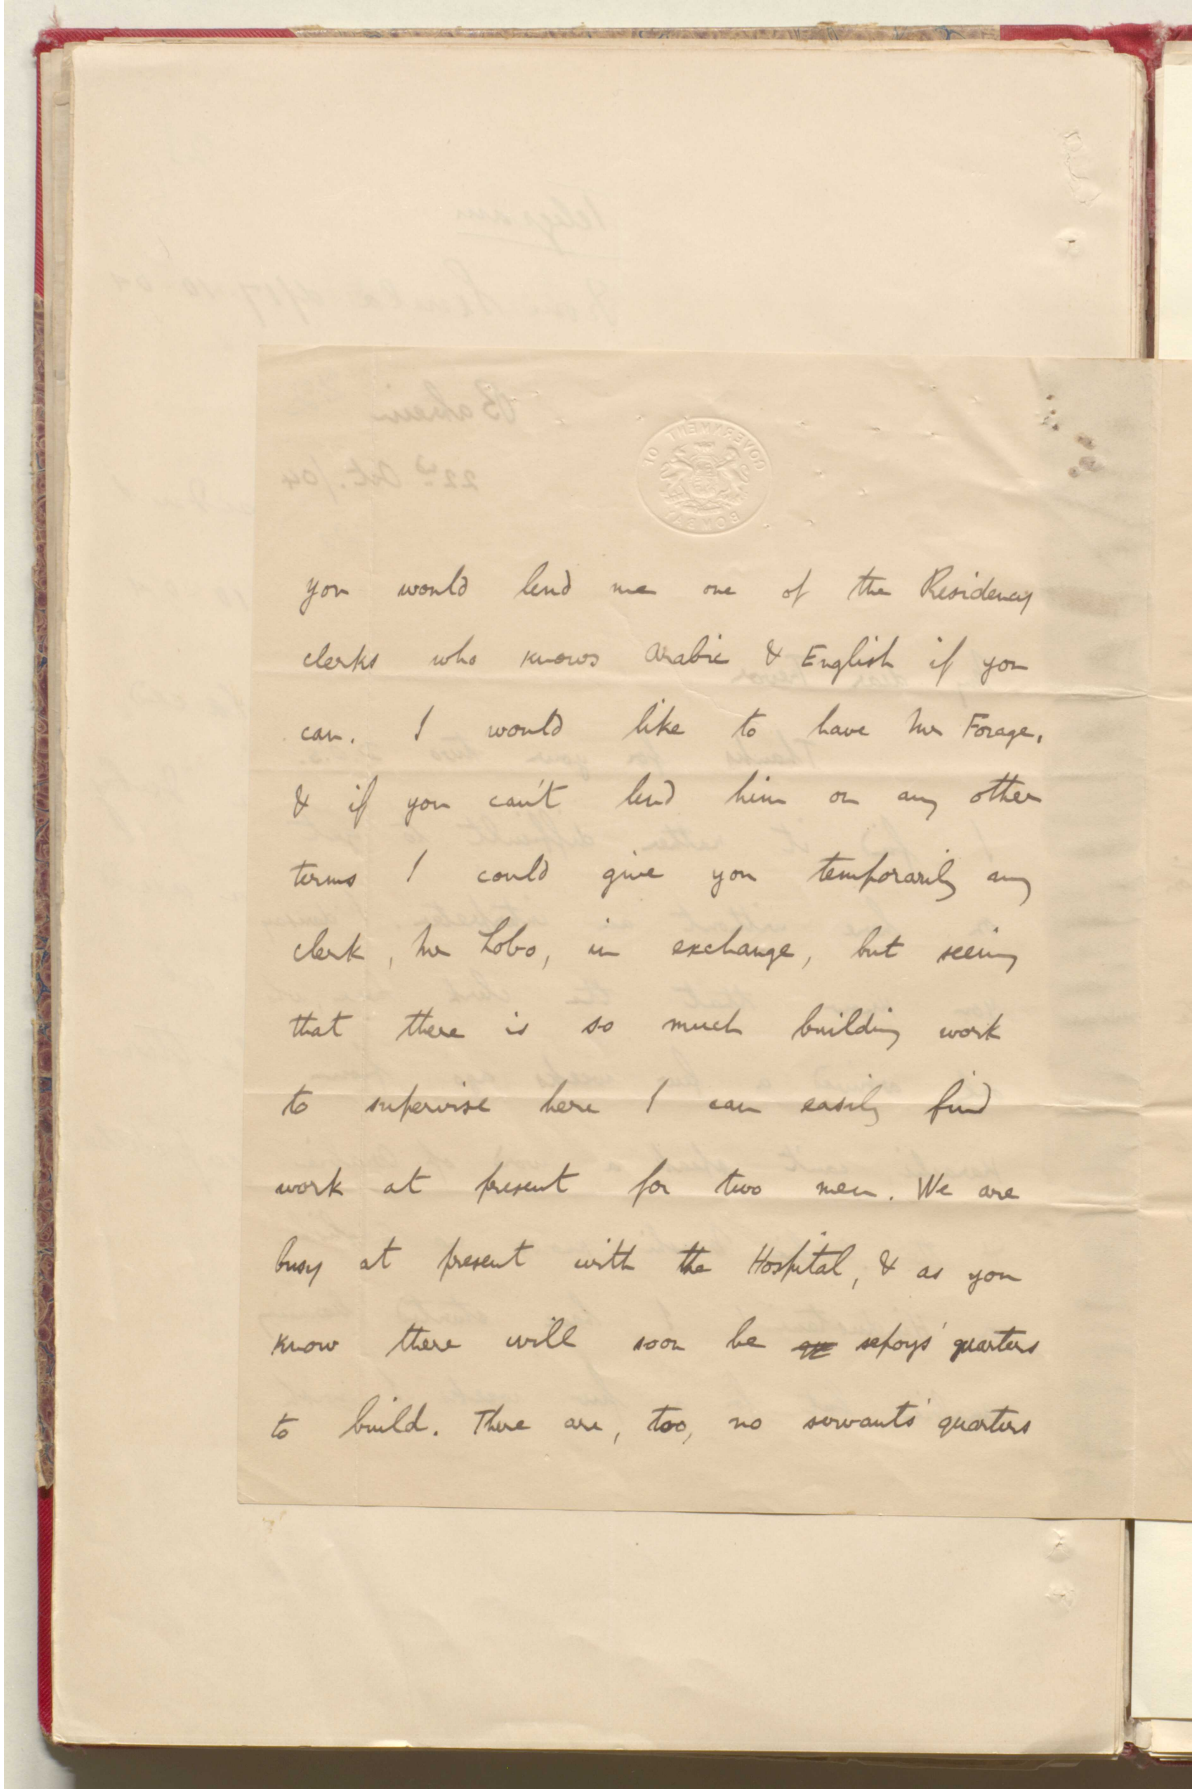 you would lend me one of the Residency
clerks who knows Arabic & English if you
can. I would like to have Mr Forage,
& if you can't lend him on any other
terms I could give you temporarily my
clerk, Mr Lobo, in exchange, but seeing
that there is so much building work
to supervise here I can easily find
work at present for two men. We are
busy at present with the Hospital, & as you
know there will soon be sepoys' quarters
to build. There are, too, no servants' quarters